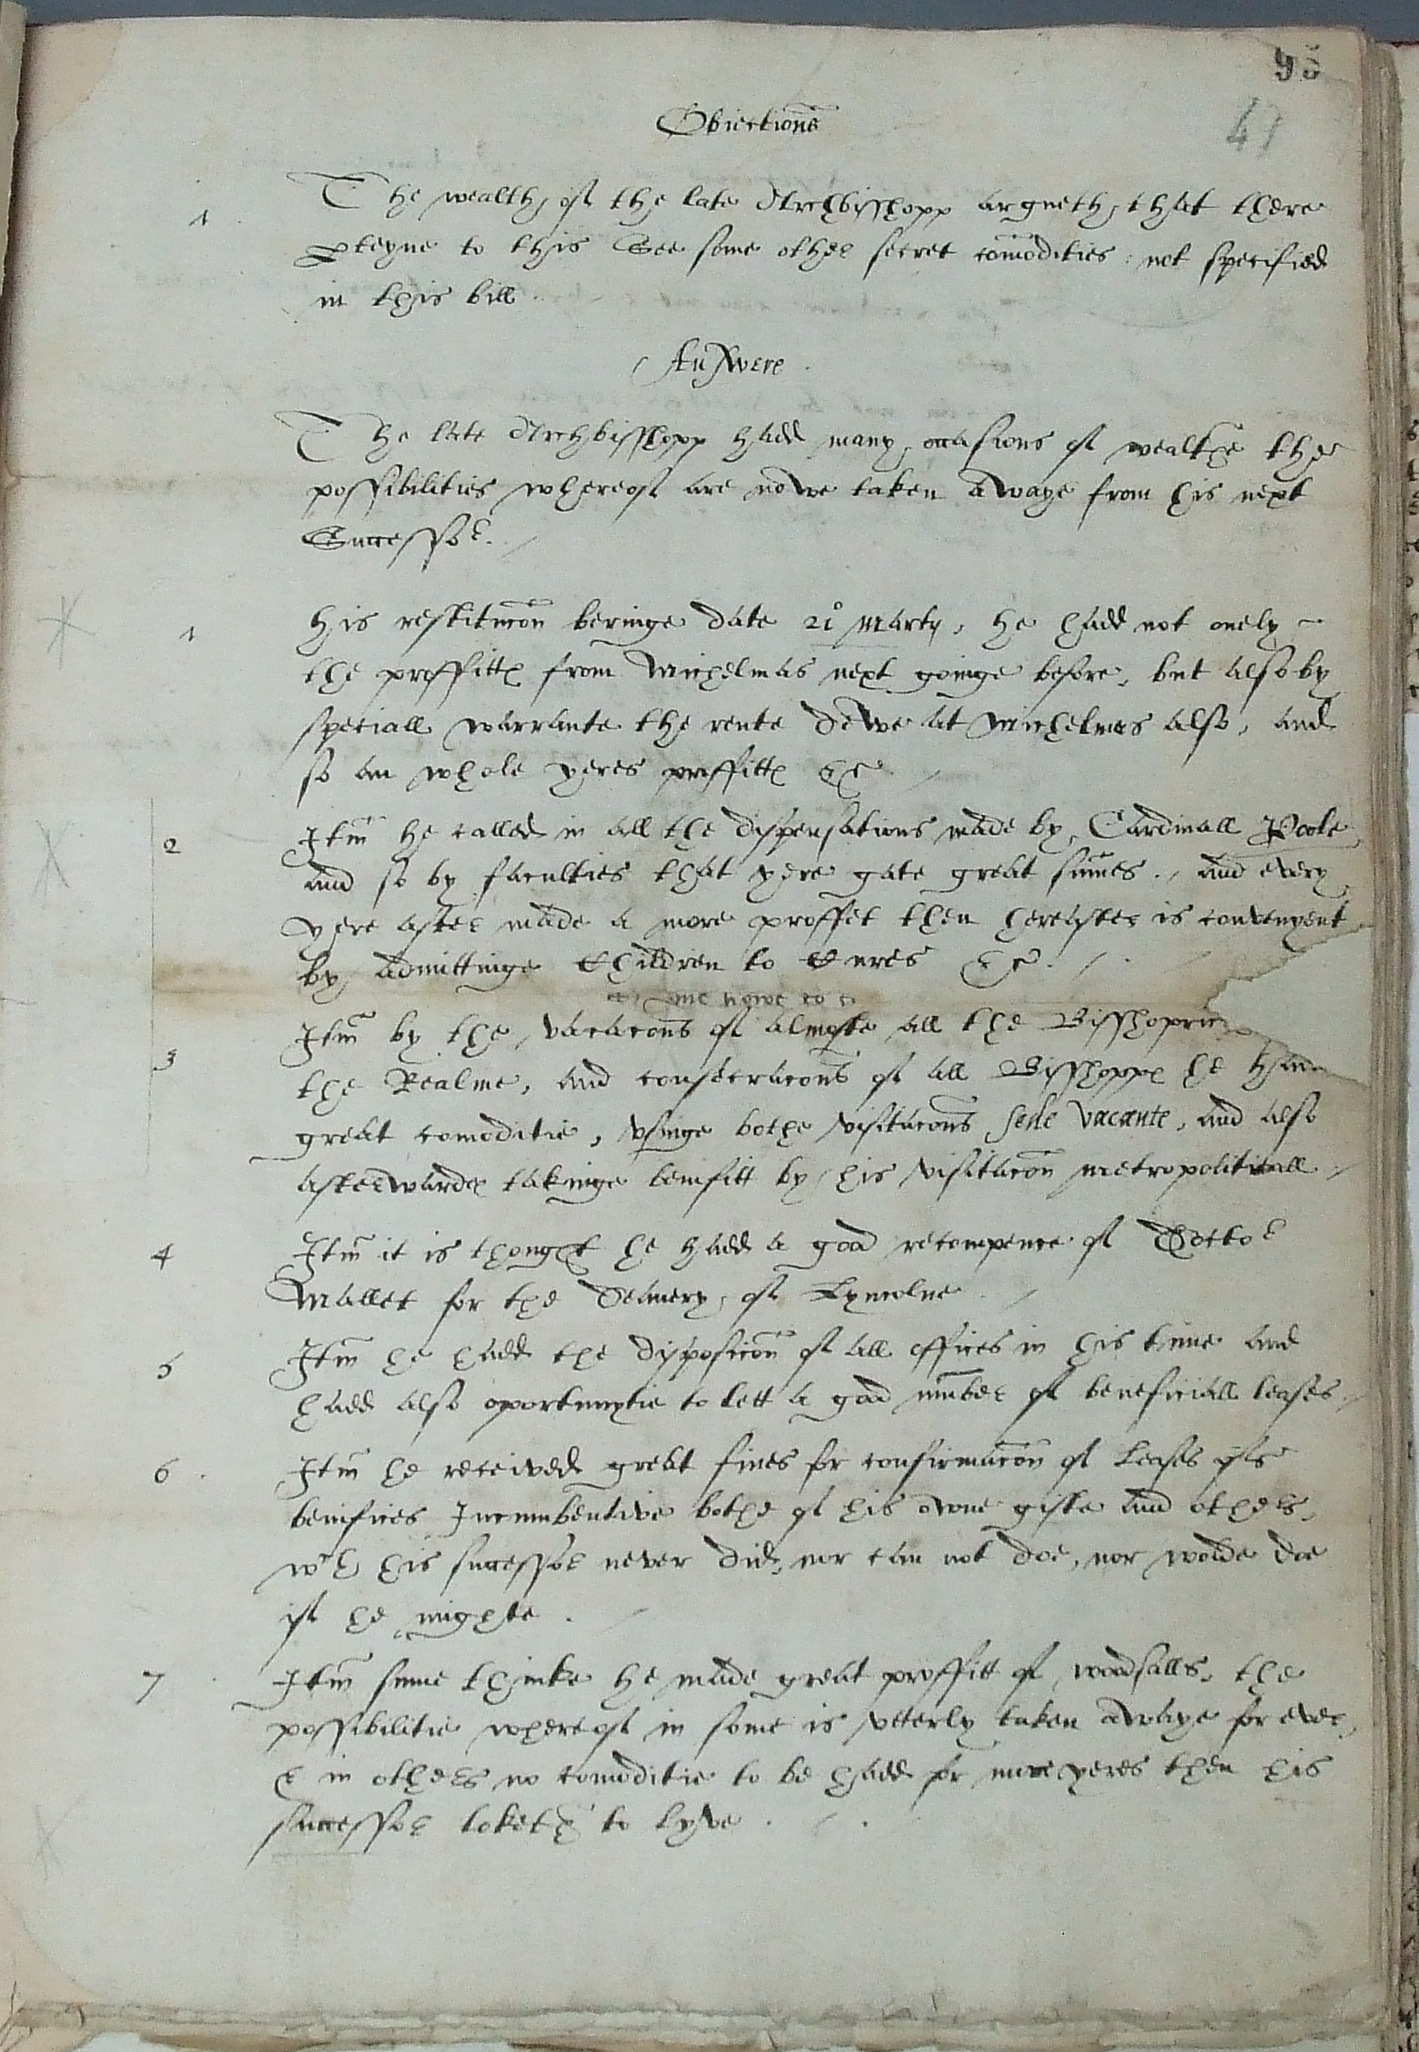 95
47
Obiections
1 The wealth of the late Archbisshopp argueth that there
pteyne to this See some other secret comodities not specified
in this bill
Answere
The late Archbisshopp hadd many occasions of wealthe the
possibilities whereof are nowe taken awaye from his next
Successor.
1 His restitucon beringe date 21° Martij, he hadd not onely
the proffitte from Michelmas next goinge before, but also by
speciall warrante the rente dewe at Michelmas also, and
so an whole yeres proffitte &c
2 Itm he called in all the dispensations made by Cardinall Poole
and so by faculties that yere gate great sumes. And every
yere after made a more proffet then hereafter is convenyent
by admittinge Children to Cures &c.
3 Itm by the vacacons of almoste all the Bisshopric
the Realme, and consecracons of all Bisshoppe he hadd
great comoditie, vsinge bothe visitacons sede vacante, and also
afterwarde takinge benifitt by his visitacon metropoliticall
4 Itm it is thought he hadd a good recompence of Doctor
Mallet for the deanery of Lyncolne
5 Itm he hadd the disposicon of all offices in his time and
hadd also oportunytie to lett a good number of beneficiall leases.
6 Itm he received great fines for confirmacon of Leases of
benifices Incumbentive bothe of his owne gifte and others,
wch his successor never did, nor can not doe, nor wolde doe
if he mighte.
7 Itm some thinke he made great proffitt of woodfalls, the
possibilitie whereof in some is vtterly taken awaye for ever,
& in others no comoditie to be hadd for more yeres then his
successor loketh to lyve.